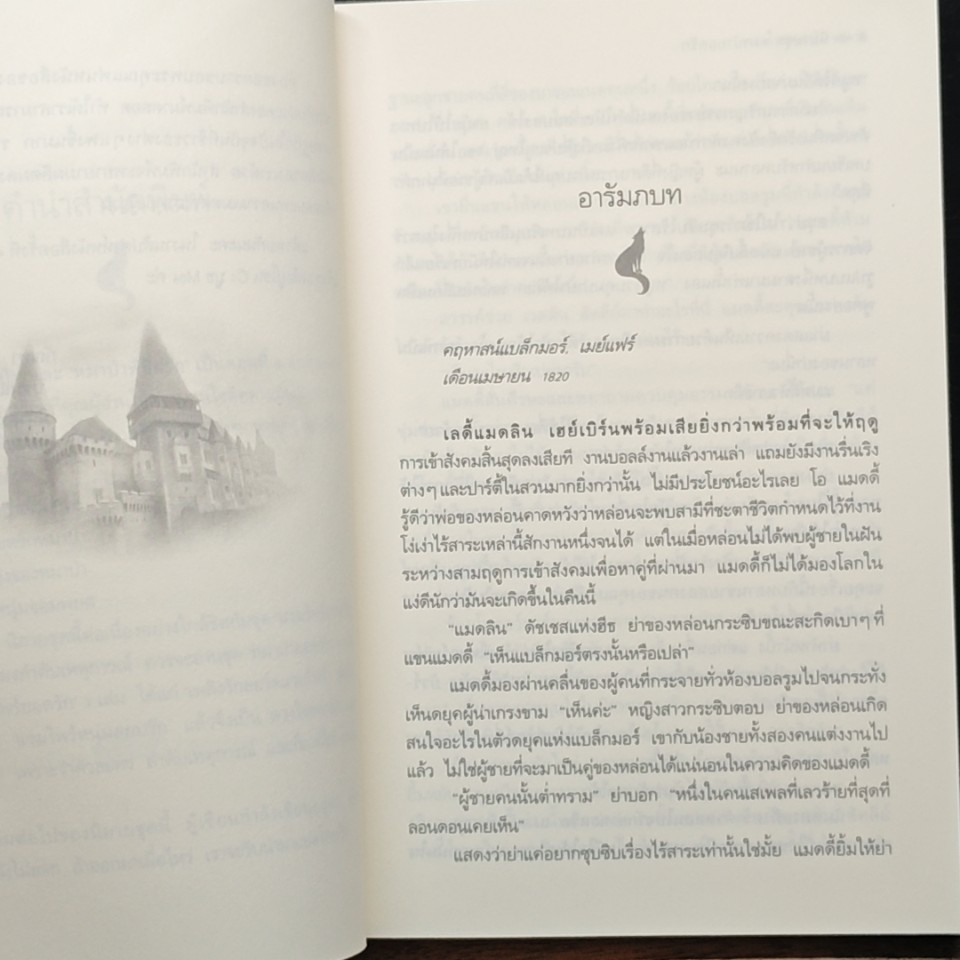 อารัมภบท
คฤหาสน์แบล็กมอร์, เมย์แฟร์
เดือนเมษายน 1820
เลดี้แมดลิน เฮย์เบิร์นพร้อมเสียยิ่งกว่าพร้อมที่จะให้ฤดู
การเข้าสังคมสิ้นสุดลงเสียที งานบอลล์งานแล้วงานเล่า แถมยังมีงานรื่นเริง
ต่างๆ และปาร์ตี้ในสวนมากยิ่งกว่านั้น ไม่มีประโยชน์อะไรเลย โอ แมดดี้
รู้ดีว่าพ่อของหล่อนคาดหวังว่าหล่อนจะพบสามีที่ชะตาชีวิตกำหนดไว้ที่งาน
โง่เง่าไร้สาระเหล่านี้สักงานหนึ่งจนได้ แต่ในเมื่อหล่อนไม่ได้พบผู้ชายในฝัน
ระหว่างสามฤดูการเข้าสังคมเพื่อหาคู่ที่ผ่านมา แมดดี้ก็ไม่ได้มองโลกใน
แง่ดีนักว่ามันจะเกิดขึ้นในคืนนี้
“แมดลิน” ดัชเชสแห่งฮีธ ย่าของหล่อนกระซิบขณะสะกิดเบาๆ ที่
แขนแมดดี้ “เห็นแบล็กมอร์ตรงนั้นหรือเปล่า”
แมดดี้มองผ่านคลื่นของผู้คนที่กระจายทั่วห้องบอลรูมไปจนกระทั่ง
เห็นดยุคผู้น่าเกรงขาม “เห็นค่ะ” หญิงสาวกระซิบตอบ ย่าของหล่อนเกิด
สนใจอะไรในตัวดยุคแห่งแบล็กมอร์ เขากับน้องชายทั้งสองคนแต่งงานไป
แล้ว ไม่ใช่ผู้ชายที่จะมาเป็นคู่ของหล่อนได้แน่นอนในความคิดของแมดดี้
“ผู้ชายคนนั้นต่ำทราม” ย่าบอก “หนึ่งในคนเสเพลที่เลวร้ายที่สุดที่
ลอนดอนเคยเห็น”
แสดงว่าย่าแค่อยากซุบซิบเรื่องไร้สาระเท่านั้นใช่มั้ย แมดดี้ยิ้มให้ย่า